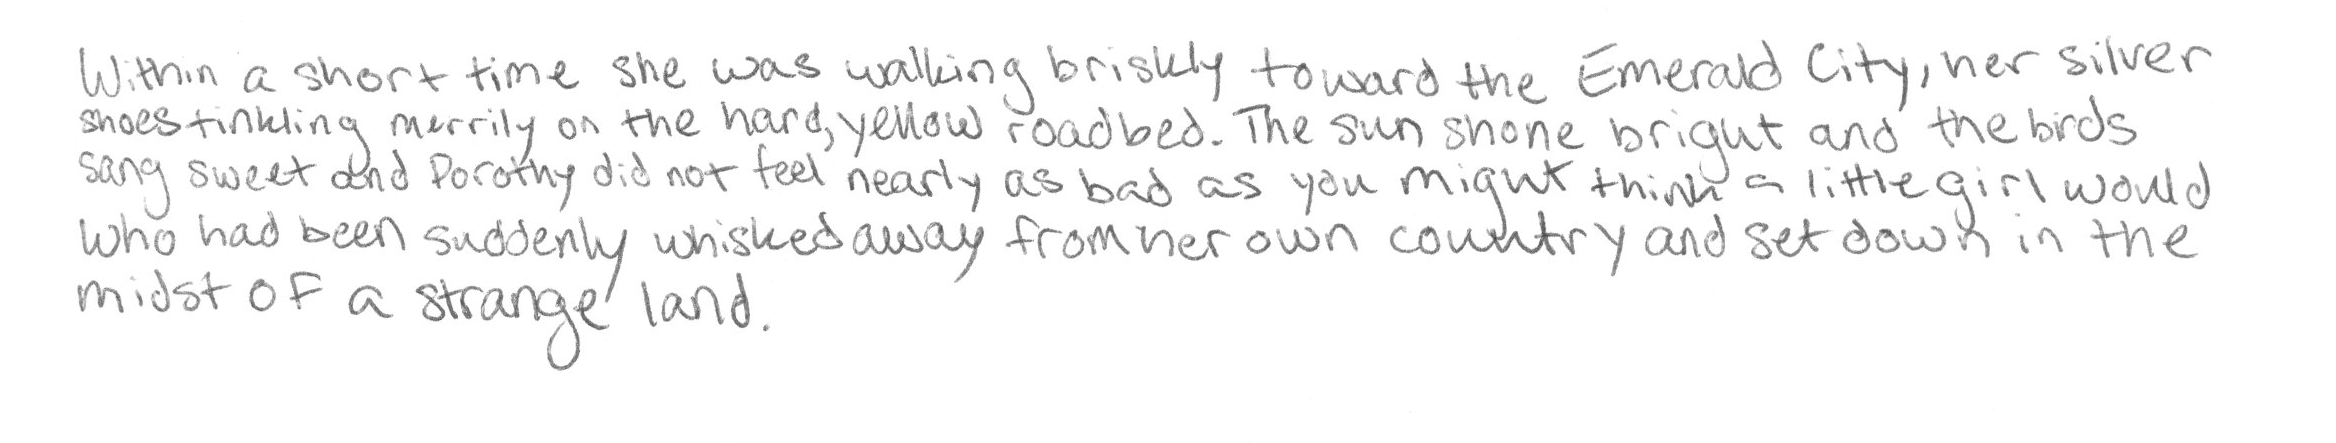 Within a short time she was walking briskly toward the Emerald City, her silver
shoes tinkling merrily on the hard, yellow roadbed. The sun shone bright and the birds
sang sweet and Dorothy did not feel nearly as bad as you might think a little girl would
who had been suddenly whisked away from her own country and set down in the
midst of a strange land.